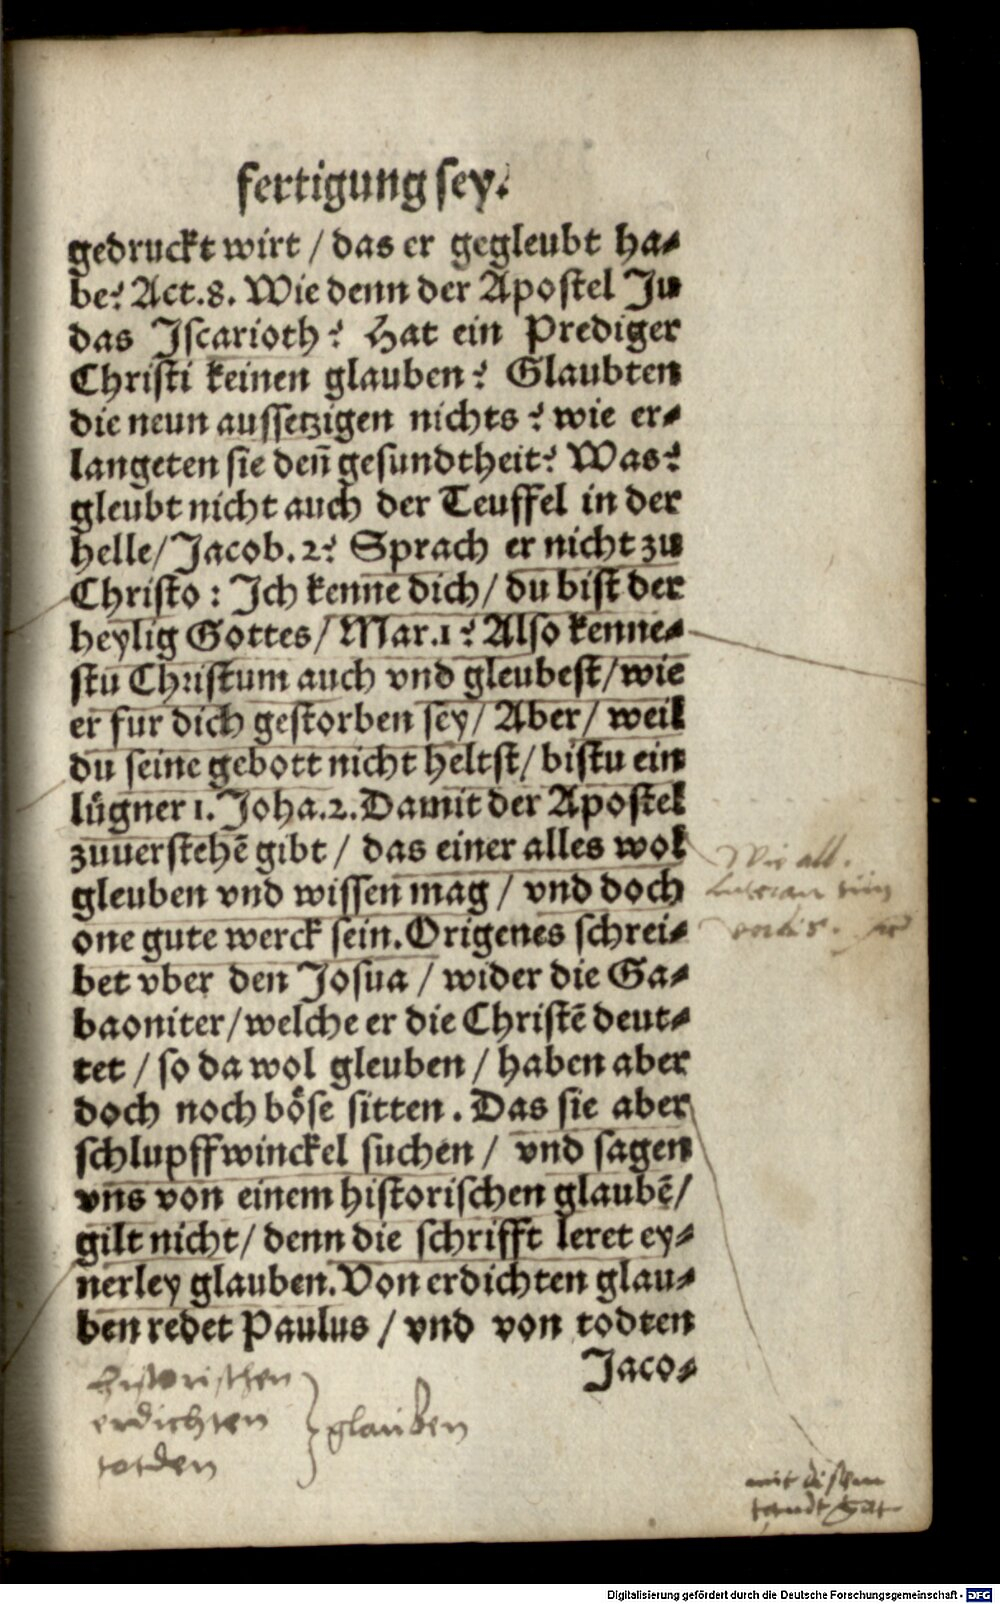 fertigung sey.
gedruckt wirt / das er gegleubt ha⸗
be? Act.8. Wie denn der Apostel Ju
das Iscarioth? Hat ein Prediger
Christi keinen glauben? Glaubten
die neun aussetzigen nichts? wie er⸗
langeten sie deñ gesundtheit? Was?
gleubt nicht auch der Teuffel in der
helle/ Jacob.2? Sprach er nicht zu
Christo: Ich kenne dich/ du bist der
heylig Gottes/ Mar.1? Also kenne⸗
stu Christum auch vnd gleubest/ wie
er fur dich gestorben sey/ Aber/ weil
du seine gebott nicht heltst/ bistu ein
lügner 1. Joha.2. Damit der Apostel
zuuerstehẽ gibt / das einer alles wol
gleuben vnd wissen mag / vnd doch
one gute werck sein. Origenes schrei⸗
bet vber den Josua / wider die Ga⸗
baoniter/ welche er die Christẽ deut⸗
tet / so da wol gleuben / haben aber
doch noch böse sitten. Das sie aber
schlupffwinckel suchen / vnd sagen
vns von einem historischen glaubẽ/
gilt nicht/ denn die schrifft leret ey⸗
nerley glauben. Von erdichten glau⸗
ben redet Paulus / vnd von todten
Jaco⸗
Wie all.
historischen
erdichten } glauben
totden